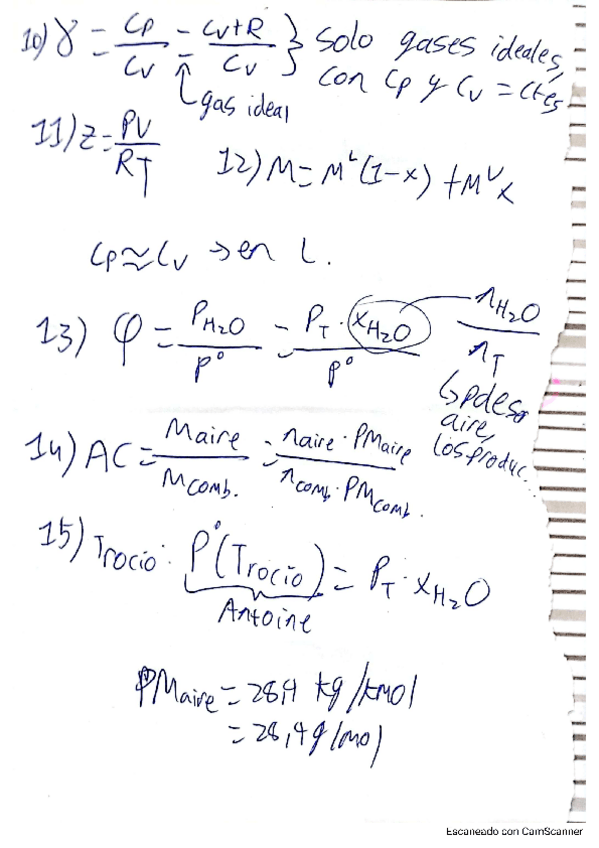 10) γ = Cp/Cv = Cv+R/Cv } solo gases ideales,
con Cp y Cv = ctes
gas ideal
11) z = PV/RT
12) M = M^L(1-x) + M^V x
Cp ≈ Cv → en L.
13) φ = P_H₂O/P° = P_T · x_H₂O/P°
n_H₂O/n_T
↳ pdeso
aire,
los produc...
14) AC = Maire/Mcomb. = naire · PMaire/ncomb. · PMcomb.
15) Trocio: P°(Trocio) = P_T · x_H₂O
Antoine
PMaire = 28,4 kg/kmol
= 28,4 g/mol
Escaneado con CamScanner